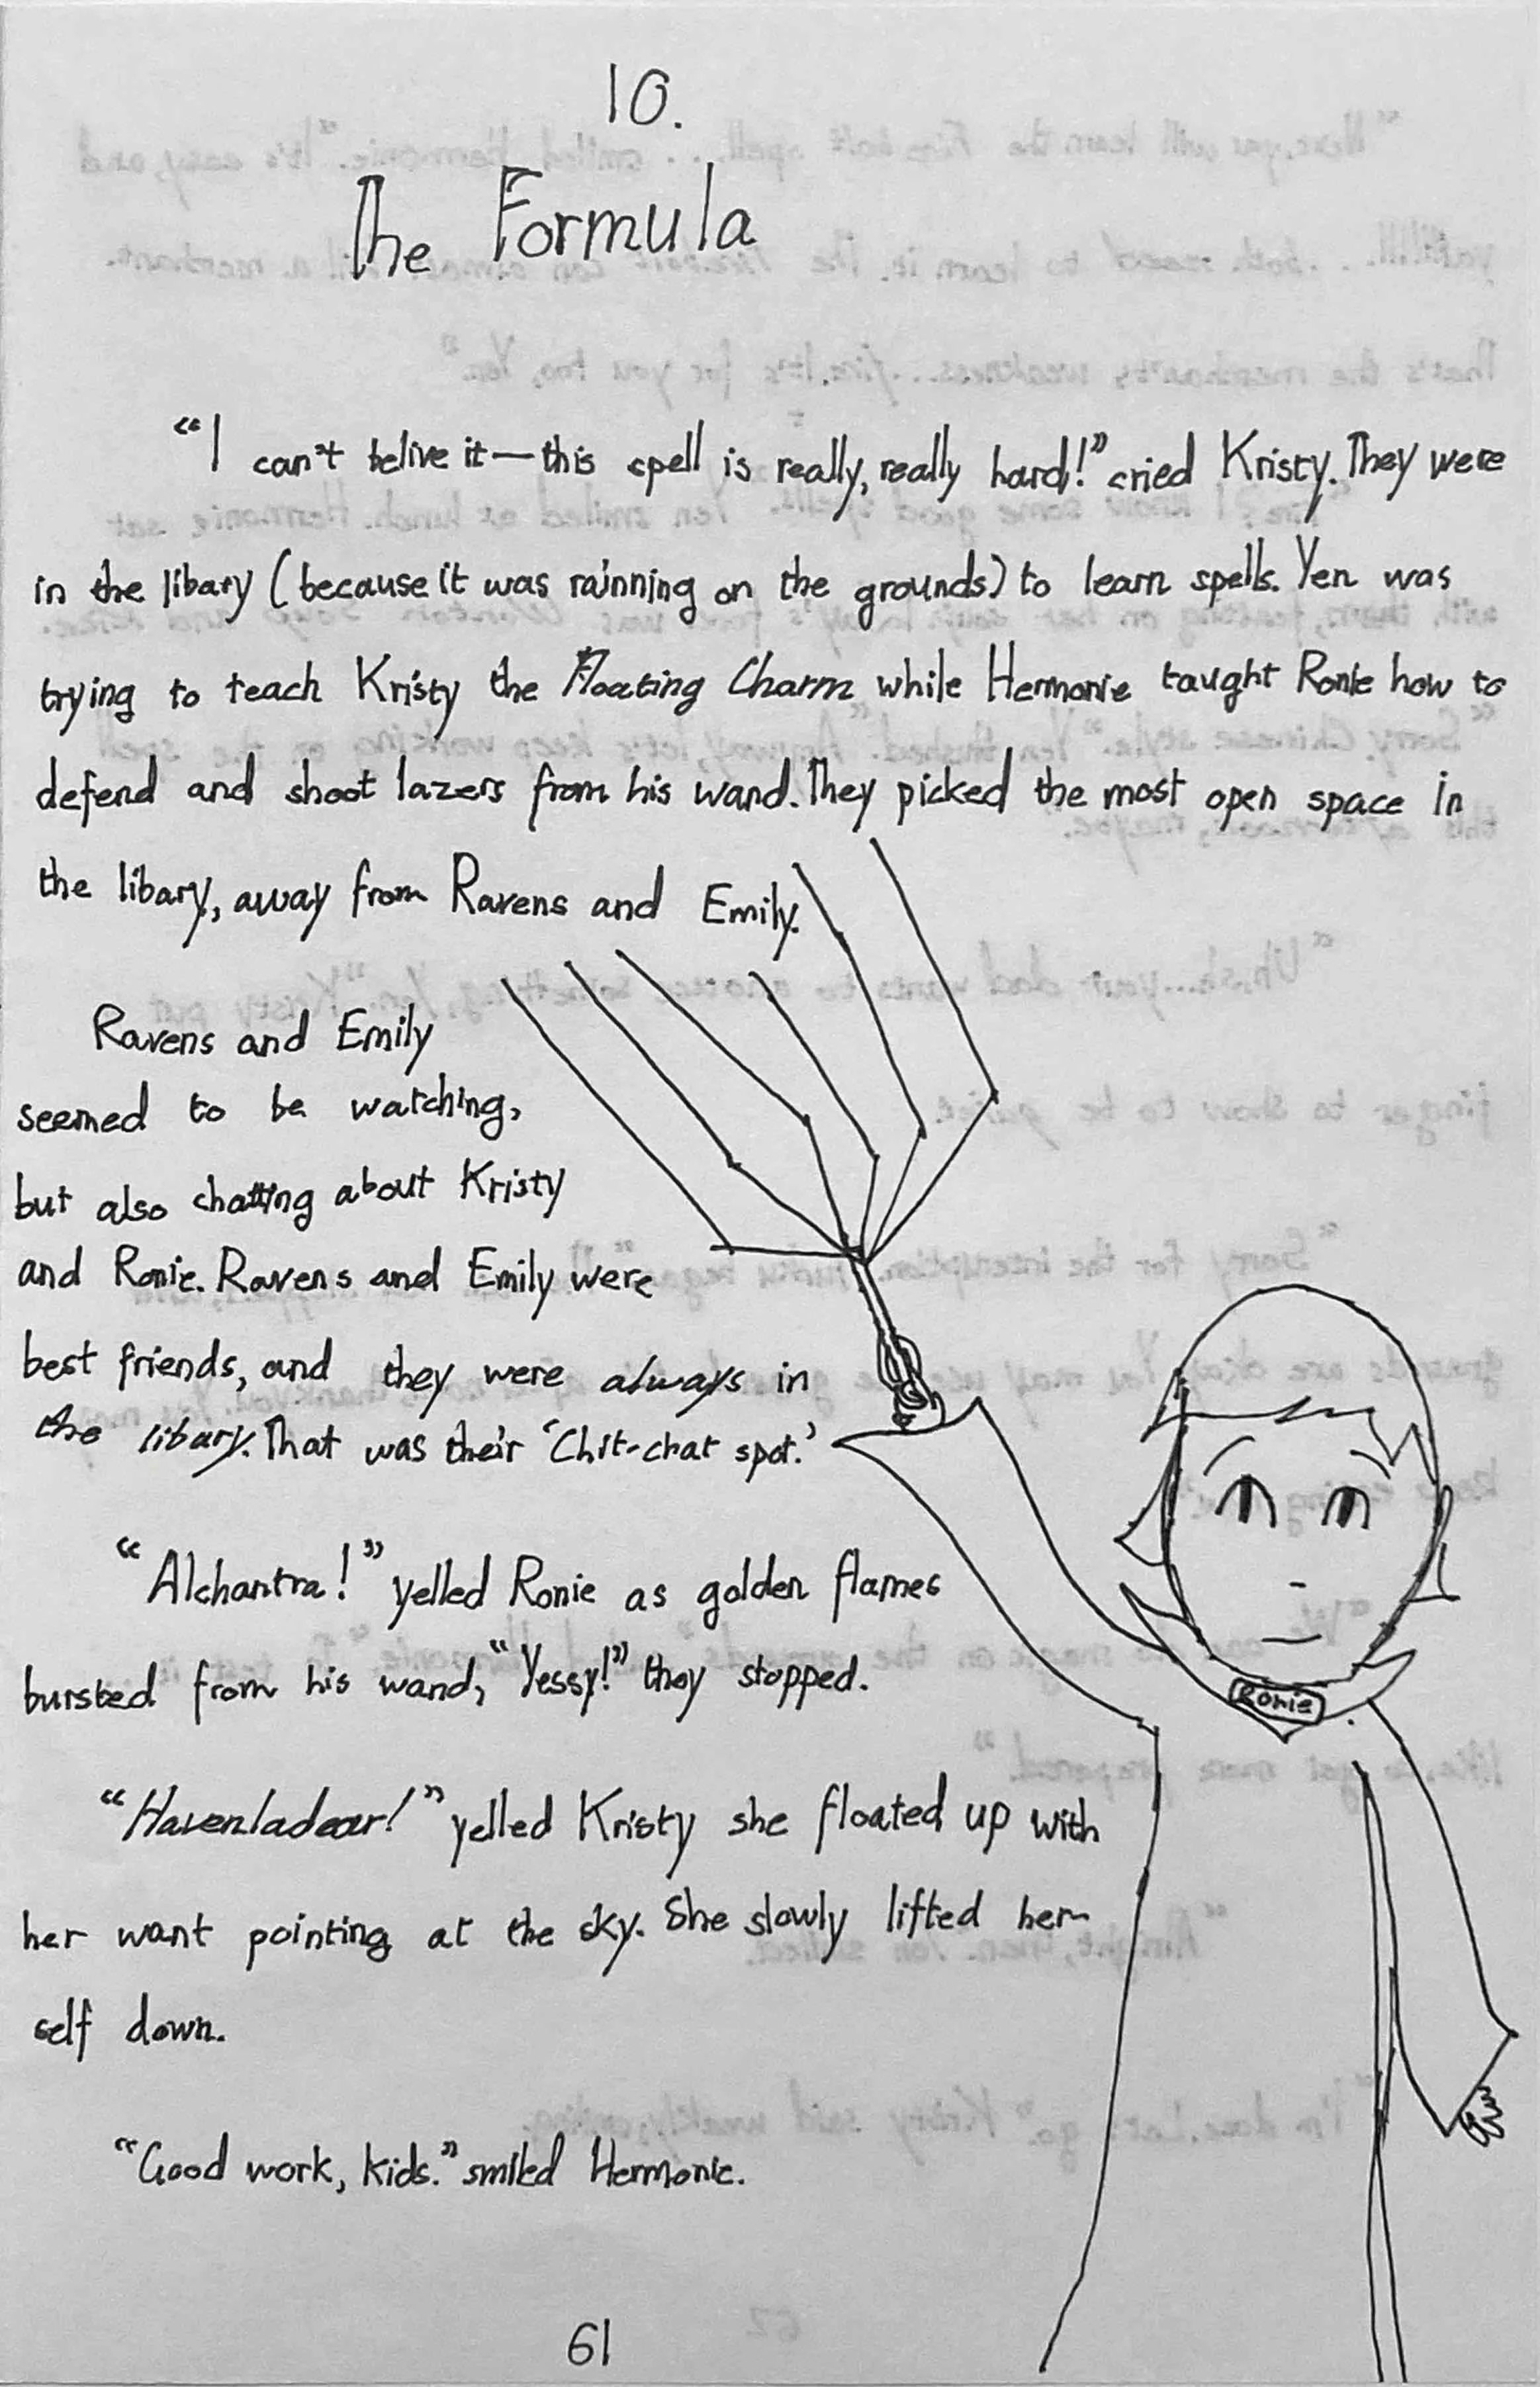 10.
The Formula
“I can't belive it—this spell is really, really hard!” cried Kristy. They were
in the libary (because it was rainning on the grounds) to learn spells. Yen was
trying to teach Kristy the Floating Charm while Hermonie taught Ronie how to
defend and shoot lazers from his wand. They picked the most open space in
the libary, away from Ravens and Emily.
Ravens and Emily
seemed to be watching,
but also chatting about Kristy
and Ronie. Ravens and Emily were
best friends, and they were always in
the libary. That was their ‘Chit-chat spot.’
“Alchantra!” yelled Ronie as golden flames
bursted from his wand, “Yessy!” they stopped.
“Havenladear!” yelled Kristy she floated up with
her want pointing at the sky. She slowly lifted her-
self down.
“Good work, kids.” smiled Hermonie.
Ronie
61